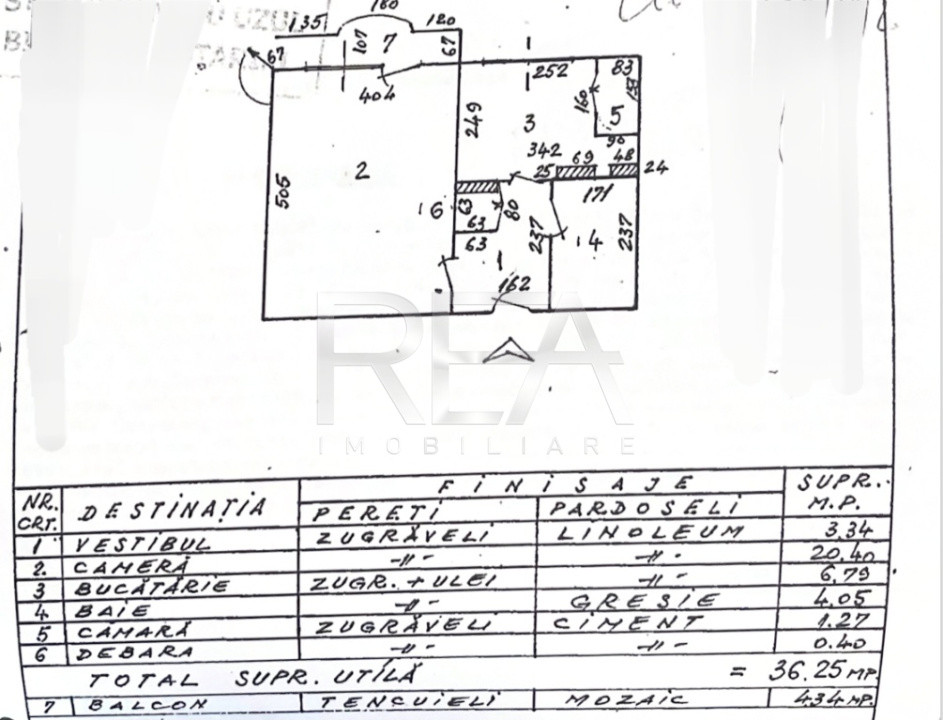 180
135 120
107 7 67
67
404
252 83
153
160 5
249 3
90
342 69 48
25 24
2
505
171
6 63 80
63
63 237 4 237
1
162
REA
IMOBILIARE
NR. CRT. DESTINAȚIA FINISAJE SUPR. M.P.
PEREȚI PARDOSELI
1 VESTIBUL ZUGRĂVELI LINOLEUM 3.34
2. CAMERĂ -〃- -〃- 20.40
3 BUCĂTĂRIE ZUGR. + ULEI -〃- 6.79
4 BAIE -〃- GRESIE 4.05
5 CĂMARĂ ZUGRĂVELI CIMENT 1.27
6 DEBARA -〃- -〃- 0.40
TOTAL SUPR. UTILĂ = 36.25 MP.
7 BALCON TENCUIELI MOZAIC 4.34 MP.